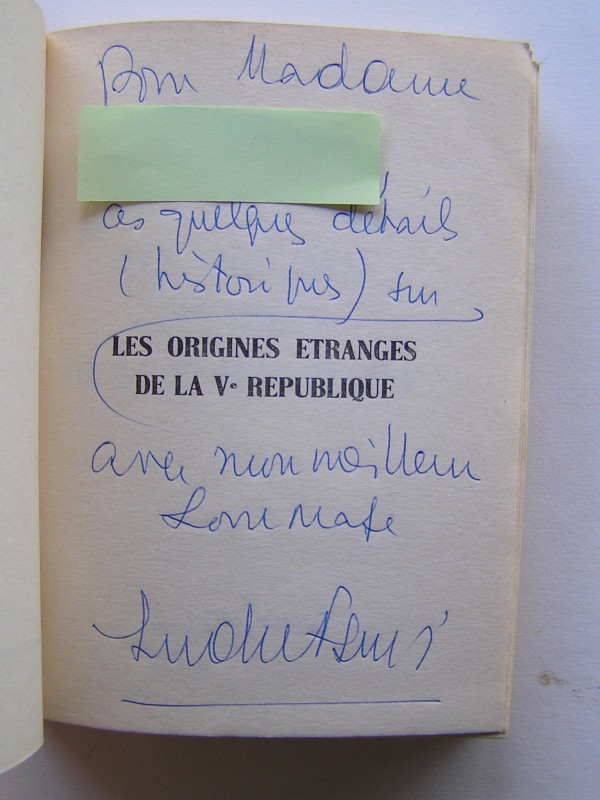 Pour Madame
ces quelques détails
(historiques) sur
LES ORIGINES ETRANGES
DE LA Ve REPUBLIQUE
avec mon meilleur
hommage